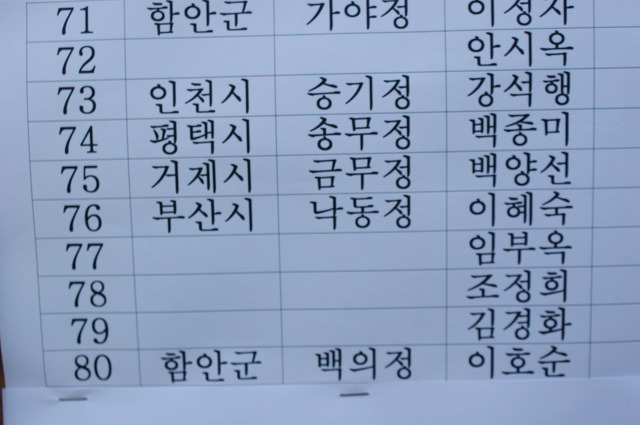 71 함안군 가야정 이정자
72 안시옥
73 인천시 승기정 강석행
74 평택시 송무정 백종미
75 거제시 금무정 백양선
76 부산시 낙동정 이혜숙
77 임부옥
78 조정희
79 김경화
80 함안군 백의정 이호순